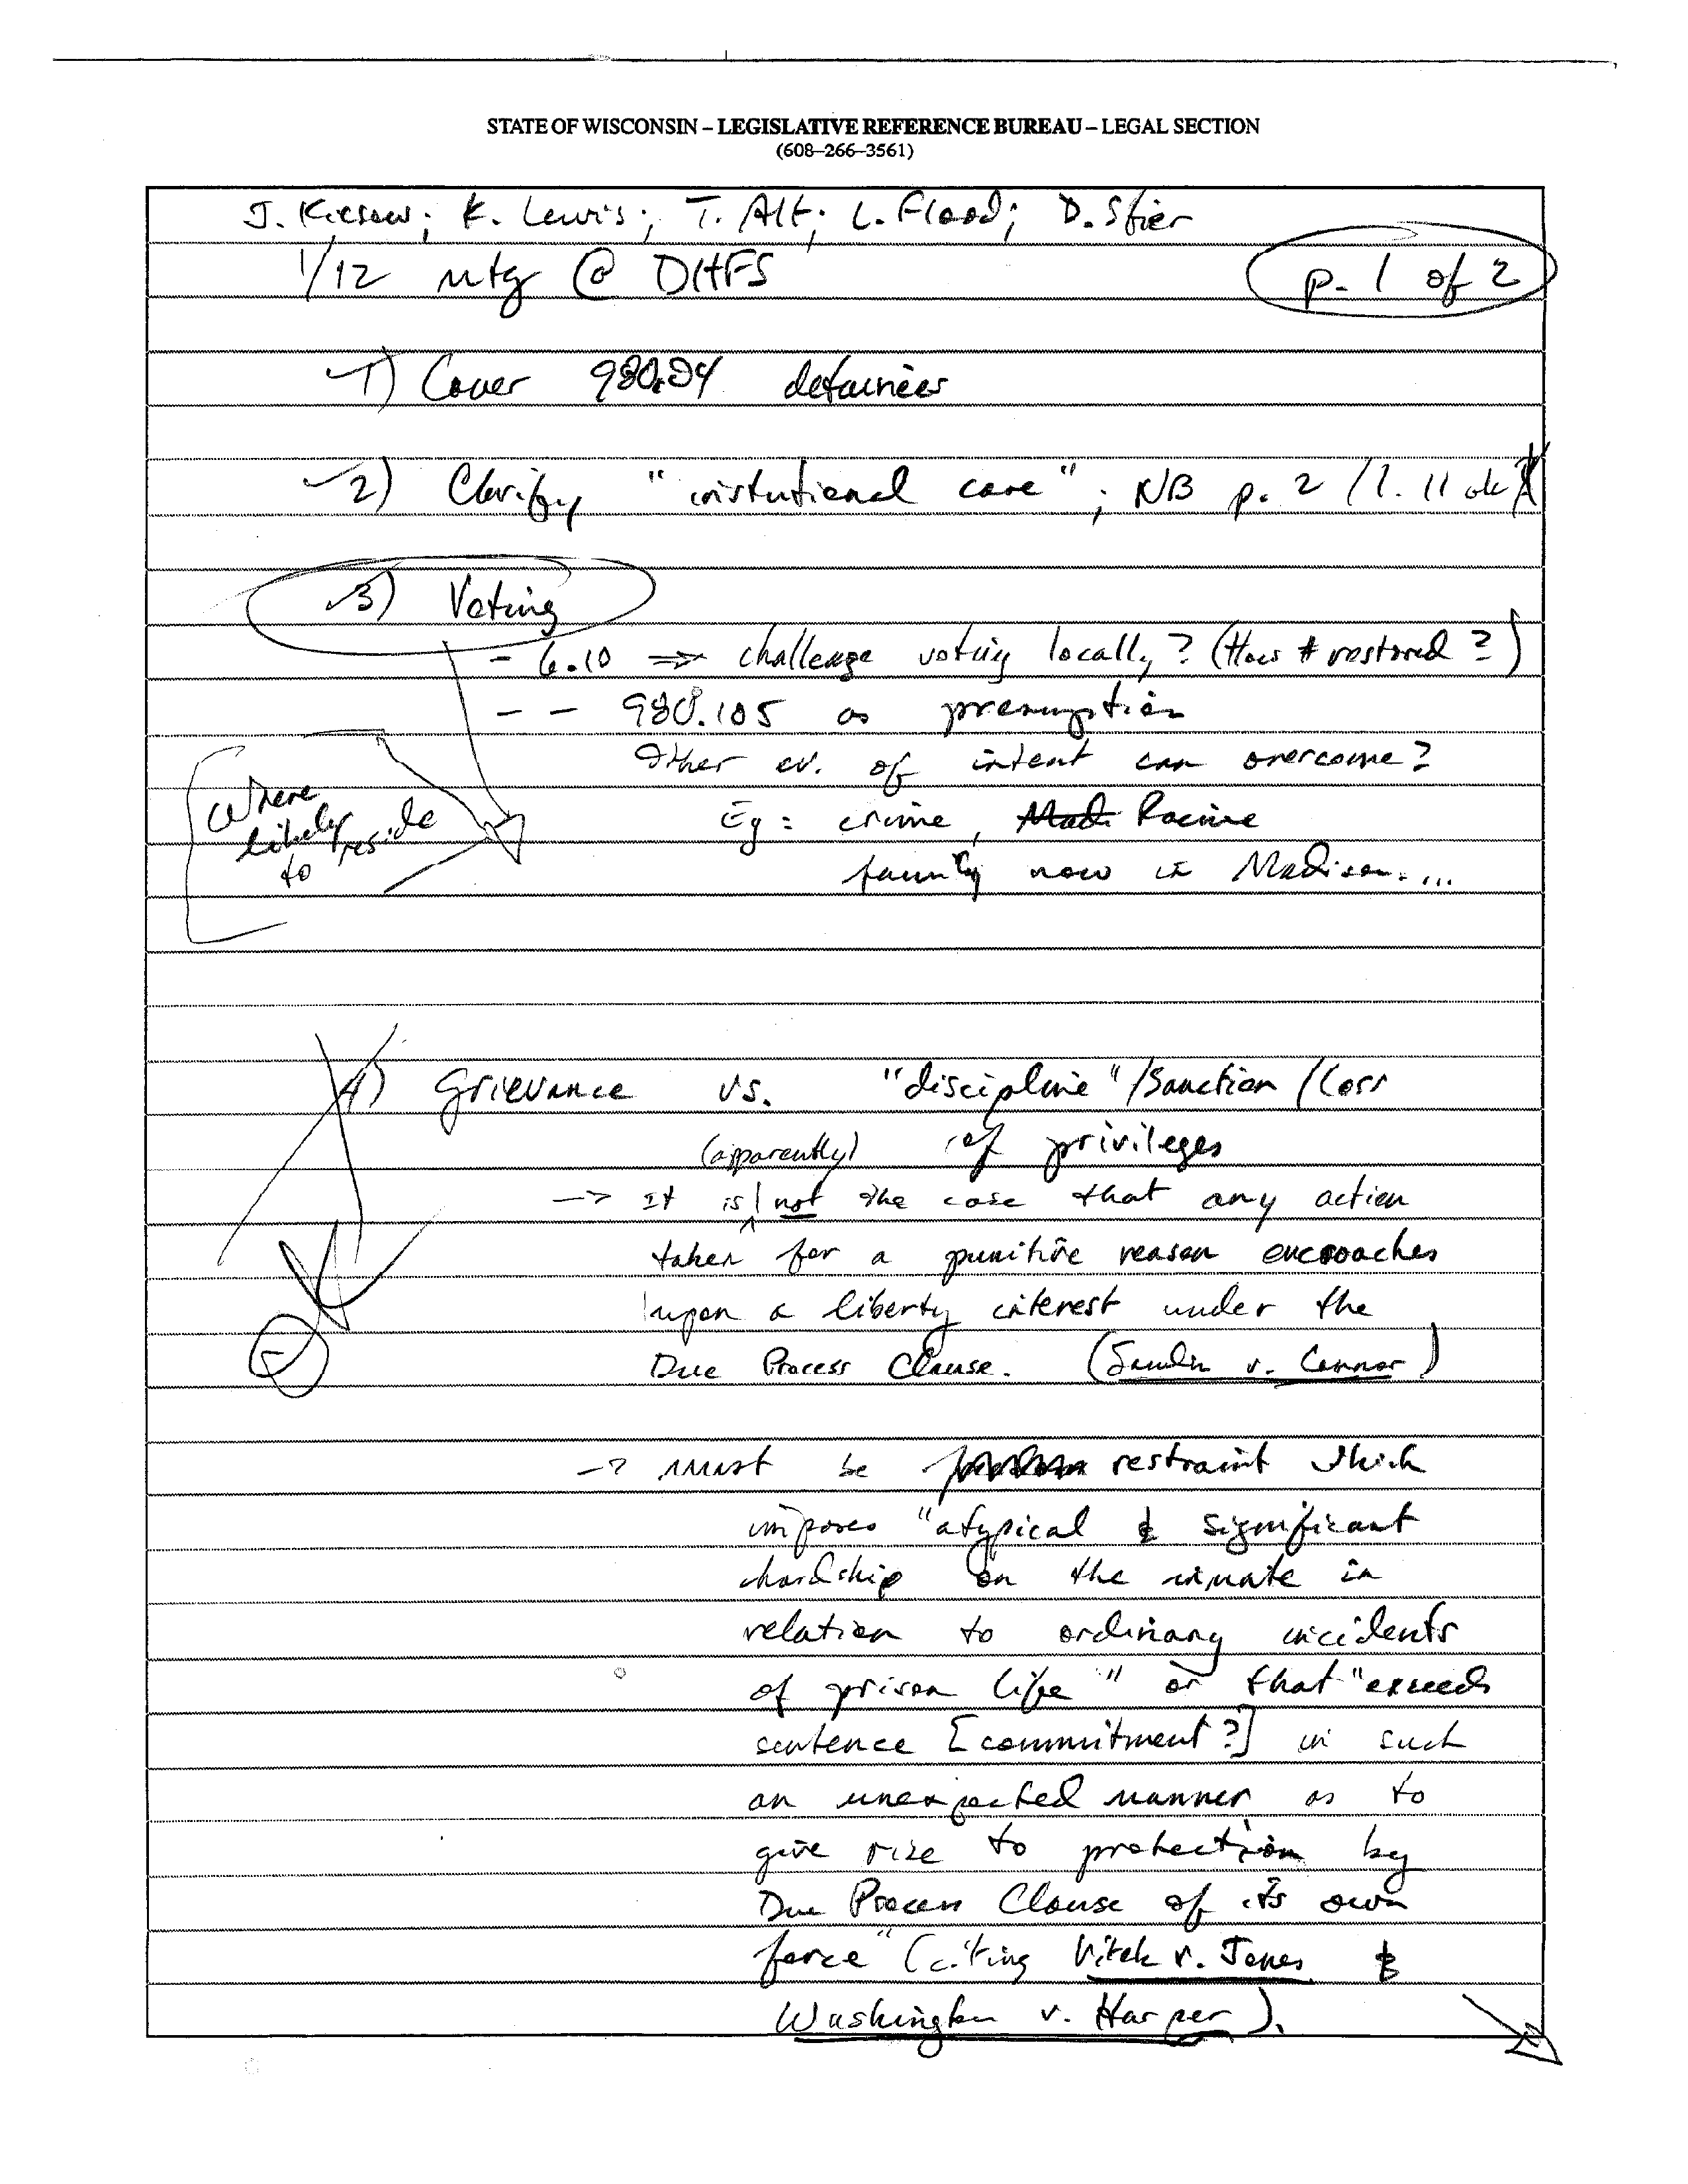 STATE OF WISCONSIN – LEGISLATIVE REFERENCE BUREAU – LEGAL SECTION
(608–266–3561)
J. Kiesow; K. Lewis; T. Alt; L. Flood; D. Stier
1/12 mtg @ DHFS
p. 1 of 2
1) Cover 980.04 detainees
2) Clarify "institutional care"; NB p. 2 / l. 11 ok
3) Voting
- 6.10 => challenge voting locally? (How # restored?)
- - 980.105 as presumption
Other ev. of intent can overcome?
Where likely to reside
Eg: crime, Racine
family now in Madison....
4) Grievance vs. "discipline"/Sanction/Loss
of privileges
(apparently)
-> It is not the case that any action
taken for a punitive reason encroaches
upon a liberty interest under the
Due Process Clause. (Sandin v. Connor)
-> must be restraint which
imposes "atypical & significant
hardship on the inmate in
relation to ordinary incidents
of prison life" or that "exceeds
sentence [commitment?] in such
an unexpected manner as to
give rise to protection by
Due Process Clause of its own
force" (citing Vitek v. Jones &
Washington v. Harper).